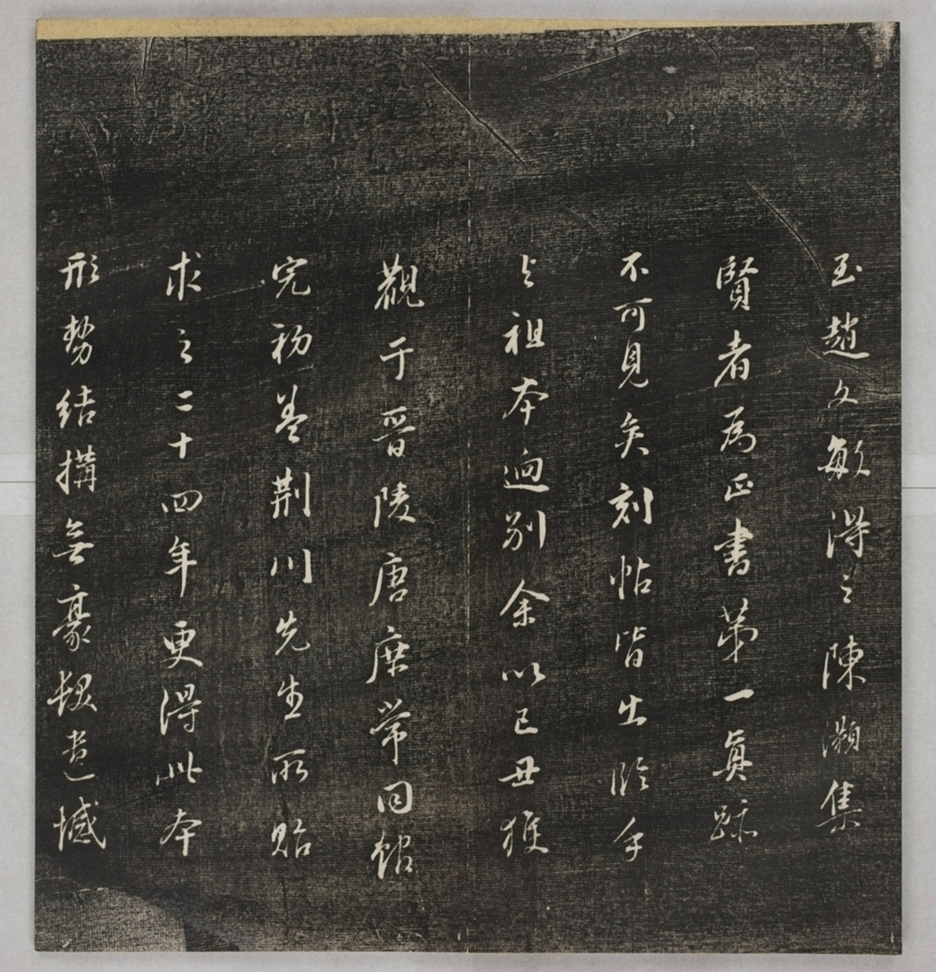 玉趙文敏得之陳灝集
賢者為正書第一真跡
不可見矣刻帖皆出臨手
與祖本迥別余以己丑獲
觀于晉陵唐庶常同館
完初蓋荊川先生所貽
求之二十四年更得此本
形勢結搆無豪髮遺憾